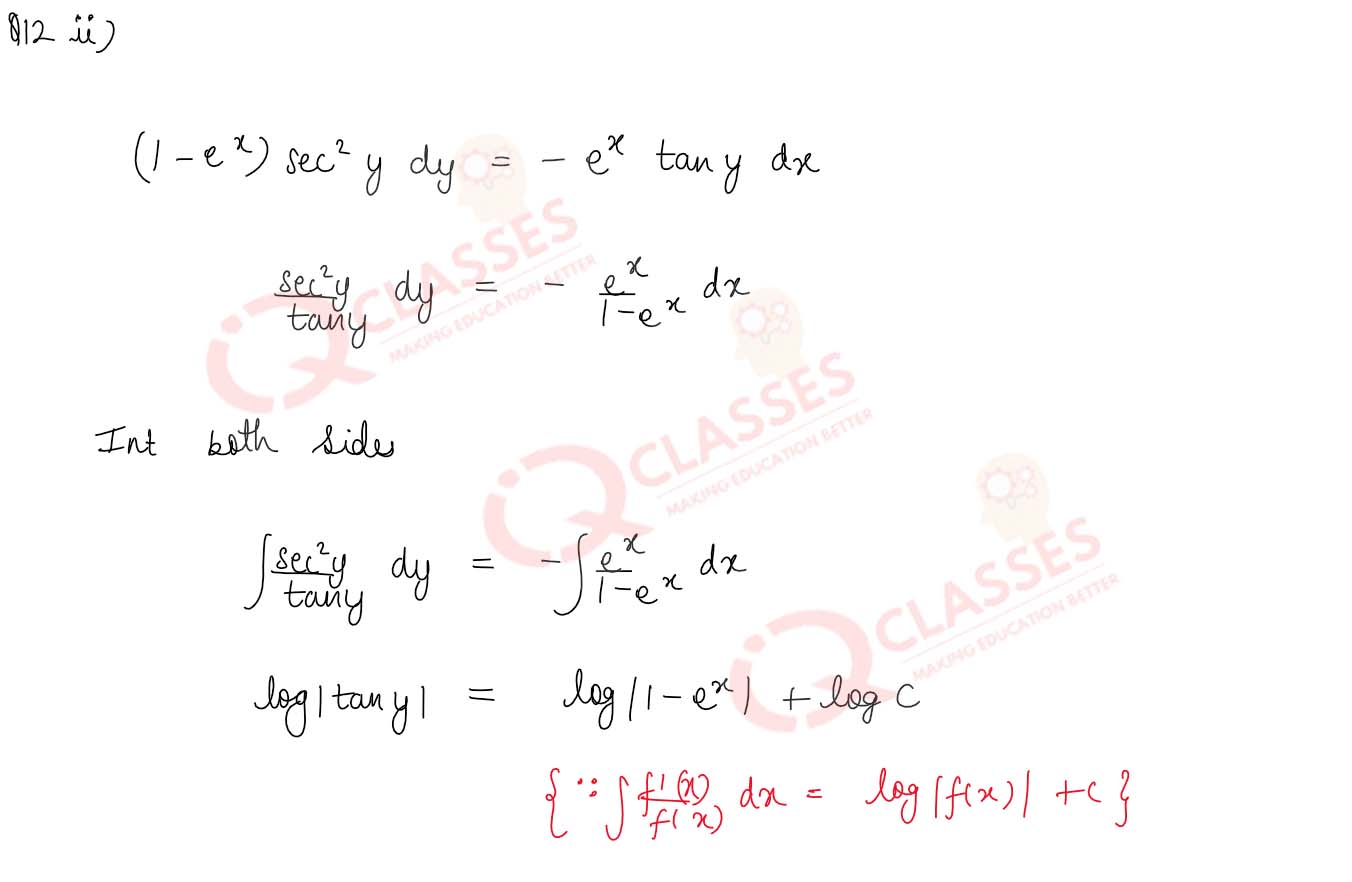 Q12 ii)
(1 - eˣ) sec² y dy = - eˣ tan y dx
sec²y/tany dy = - eˣ/1-eˣ dx
Int both sides
∫ sec²y/tany dy = -∫ eˣ/1-eˣ dx
log|tan y| = log|1-eˣ| + log C
{∵ ∫ f'(x)/f(x) dx = log|f(x)| + c}
iQ CLASSES
MAKING EDUCATION BETTER
iQ CLASSES
MAKING EDUCATION BETTER
iQ CLASSES
MAKING EDUCATION BETTER